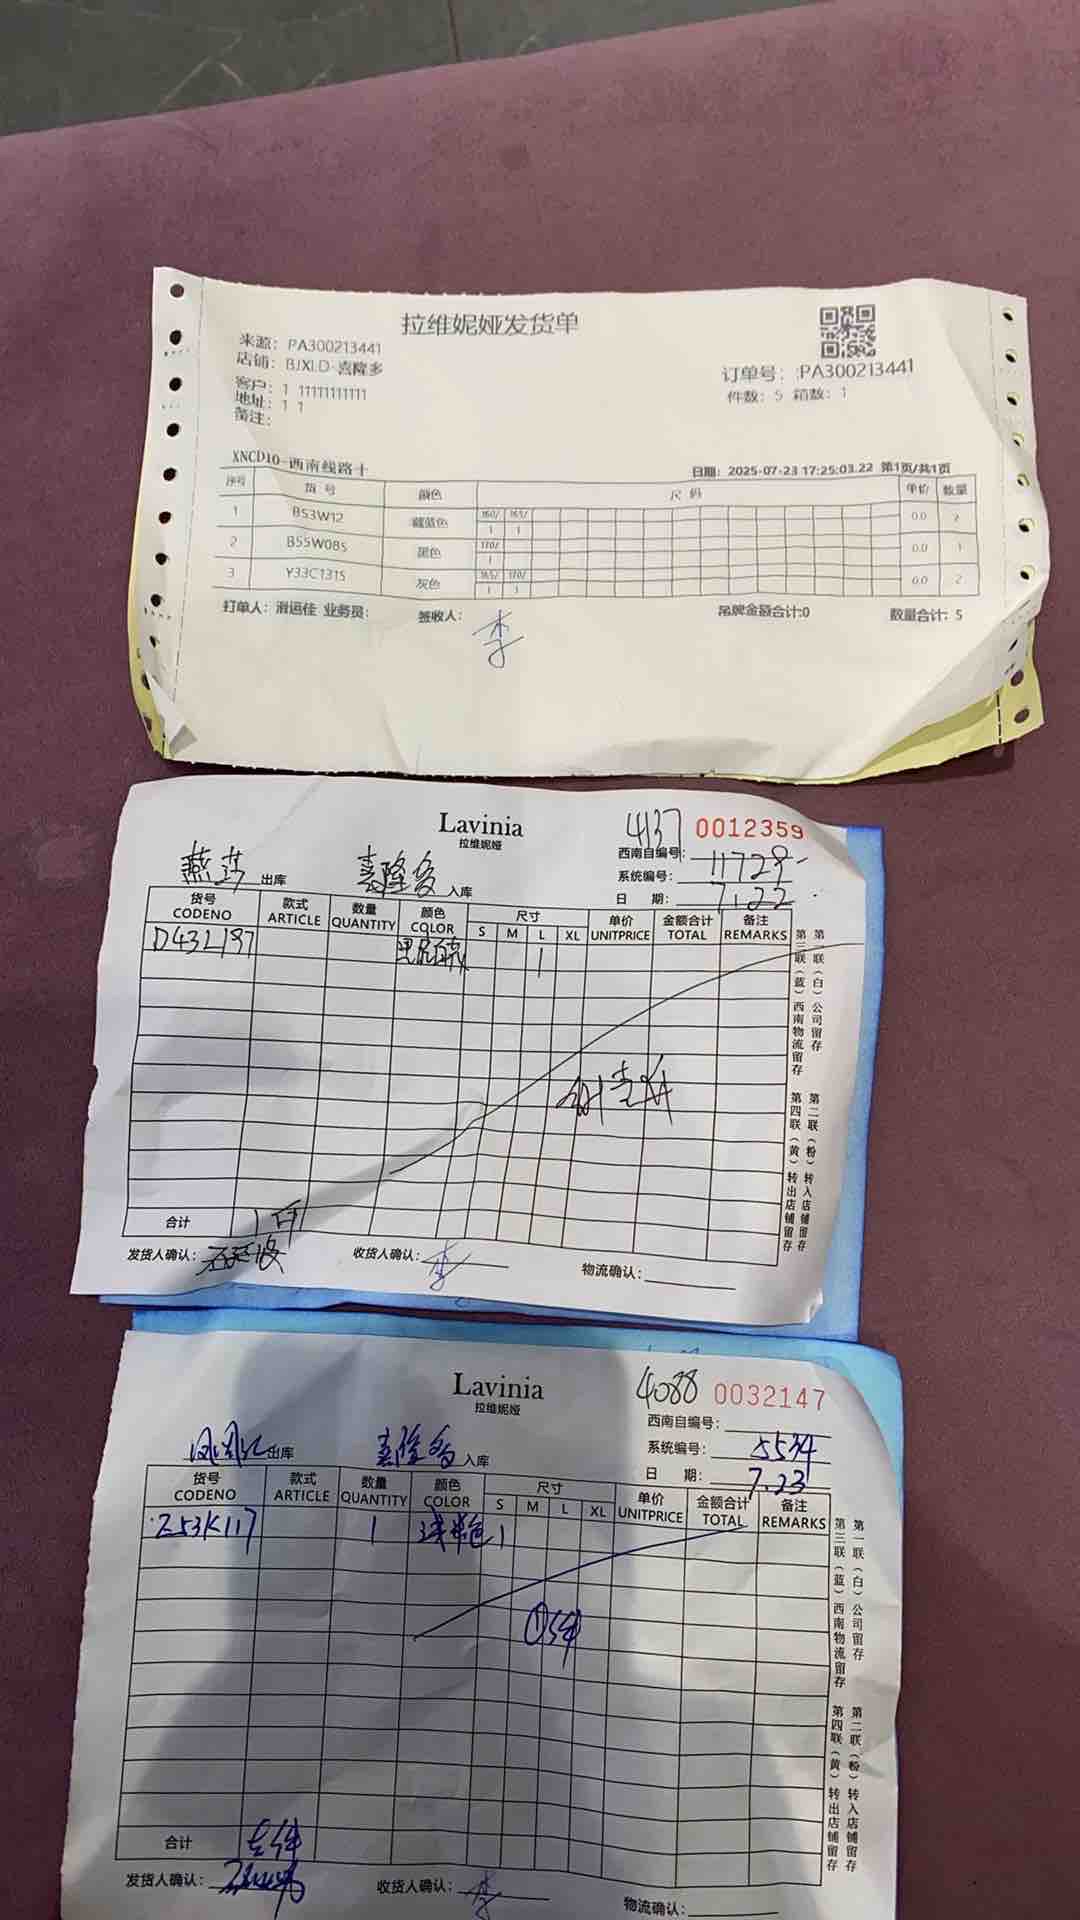 拉维妮娅发货单
来源: PA300213441
店铺: BJXLD-喜隆多
订单号: :PA300213441
客户: 1 11111111111
件数: 5 箱数: 1
地址: 1 1
备注:
XNCD10-西南线路十
日期: 2025-07-23 17:25:03.22 第1页/共1页
序号 货号 颜色 尺码 单价 数量
160/ 165/
1 B53W12 藏蓝色 1 1 0.0 2
170/
2 B55W085 黑色 1 0.0 1
165/ 170/
3 Y33C131S 灰色 1 1 0.0 2
打单人: 滑运佳 业务员: 签收人: 李 吊牌金额合计:0 数量合计: 5
Lavinia
拉维妮娅
4137 0012359
西南自编号: 11729
系统编号:
燕莎 出库 喜隆多 入库
日 期: 7.22
货号 款式 数量 颜色 尺寸 单价 金额合计 备注
CODENO ARTICLE QUANTITY COLOR S M L XL UNITPRICE TOTAL REMARKS
D43L197 1
合计 1件
发货人确认: 收货人确认: 李 物流确认:
第一联(白)公司留存
第二联(粉)转入店铺留存
第三联(蓝)西南物流留存
第四联(黄)转出店铺留存
Lavinia
拉维妮娅
4088 0032147
西南自编号:
系统编号: 5534
出库 喜隆多 入库
日 期: 7.23
货号 款式 数量 颜色 尺寸 单价 金额合计 备注
CODENO ARTICLE QUANTITY COLOR S M L XL UNITPRICE TOTAL REMARKS
Z53K117 1 浅紫色 1
合计
发货人确认: 收货人确认: 李 物流确认:
第一联(白)公司留存
第二联(粉)转入店铺留存
第三联(蓝)西南物流留存
第四联(黄)转出店铺留存